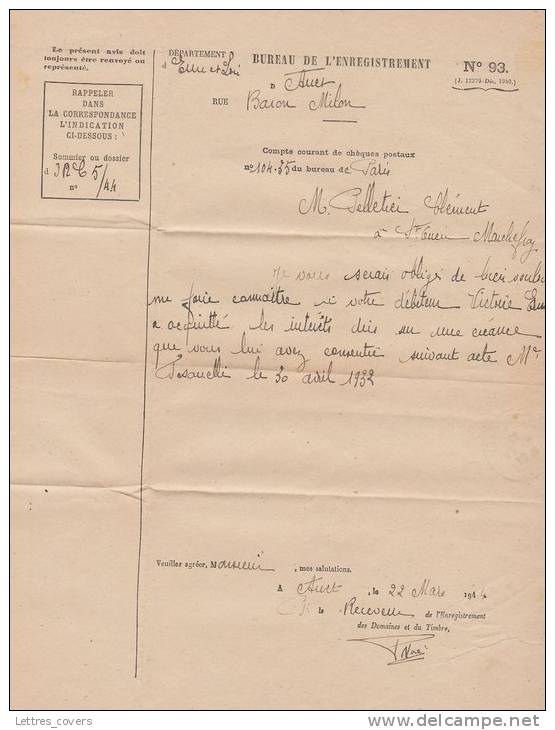 Le présent avis doit
toujours être renvoyé ou
représenté.
RAPPELER
DANS
LA CORRESPONDANCE
L'INDICATION
CI-DESSOUS :
Sommier ou dossier
d IRC 5/44
n°
DÉPARTEMENT
d'Eure et Loir
BUREAU DE L'ENREGISTREMENT
D'Anet
RUE Baron Milon
N° 93.
Compte courant de chèques postaux
n° 104-35 du bureau de Paris
M. Pelletier Clément
à St Lucien Marchefroy
Je vous serais obligé de bien vouloir
me faire connaître si votre débiteur Victoire
a acquitté les intérêts dûs sur une créance
que vous lui avez consentie suivant acte Me
le 30 avril 1932
Veuillez agréer, Monsieur, mes salutations.
A Anet, le 22 Mars 194
le Receveur de l'Enregistrement
des Domaines et du Timbre,
Lettres_covers
delcampe.net